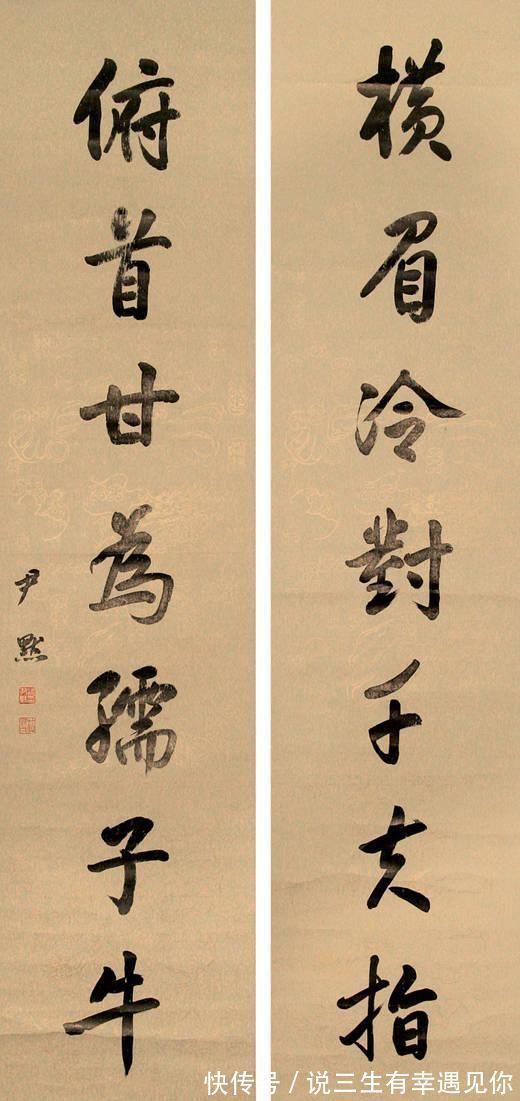 橫眉冷對千夫指
俯首甘為孺子牛
尹默
快传号/说三生有幸遇见你